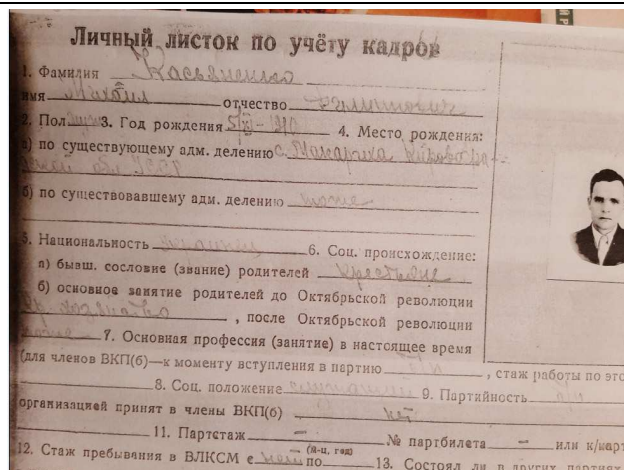 Личный листок по учёту кадров
1. Фамилия Касьяненко
имя Михаил отчество
2. Пол муж 3. Год рождения 5/XI-1910 4. Место рождения:
а) по существующему адм. делению с. Макариха Кировогра-
дской обл УССР
б) по существовавшему адм. делению тоже
5. Национальность украинец 6. Соц. происхождение:
а) бывш. сословие (звание) родителей крестьяне
б) основное занятие родителей до Октябрьской революции
хозяйство, после Октябрьской революции
тоже 7. Основная профессия (занятие) в настоящее время
(для членов ВКП(б)—к моменту вступления в партию, стаж работы по это
8. Соц. положение служащий 9. Партийность
организацией принят в члены ВКП(б) нет
11. Партстаж — № партбилета — или к/карт
12. Стаж пребывания в ВЛКСМ с нет по (м-ц, год) 13. Состоял ли в других партиях